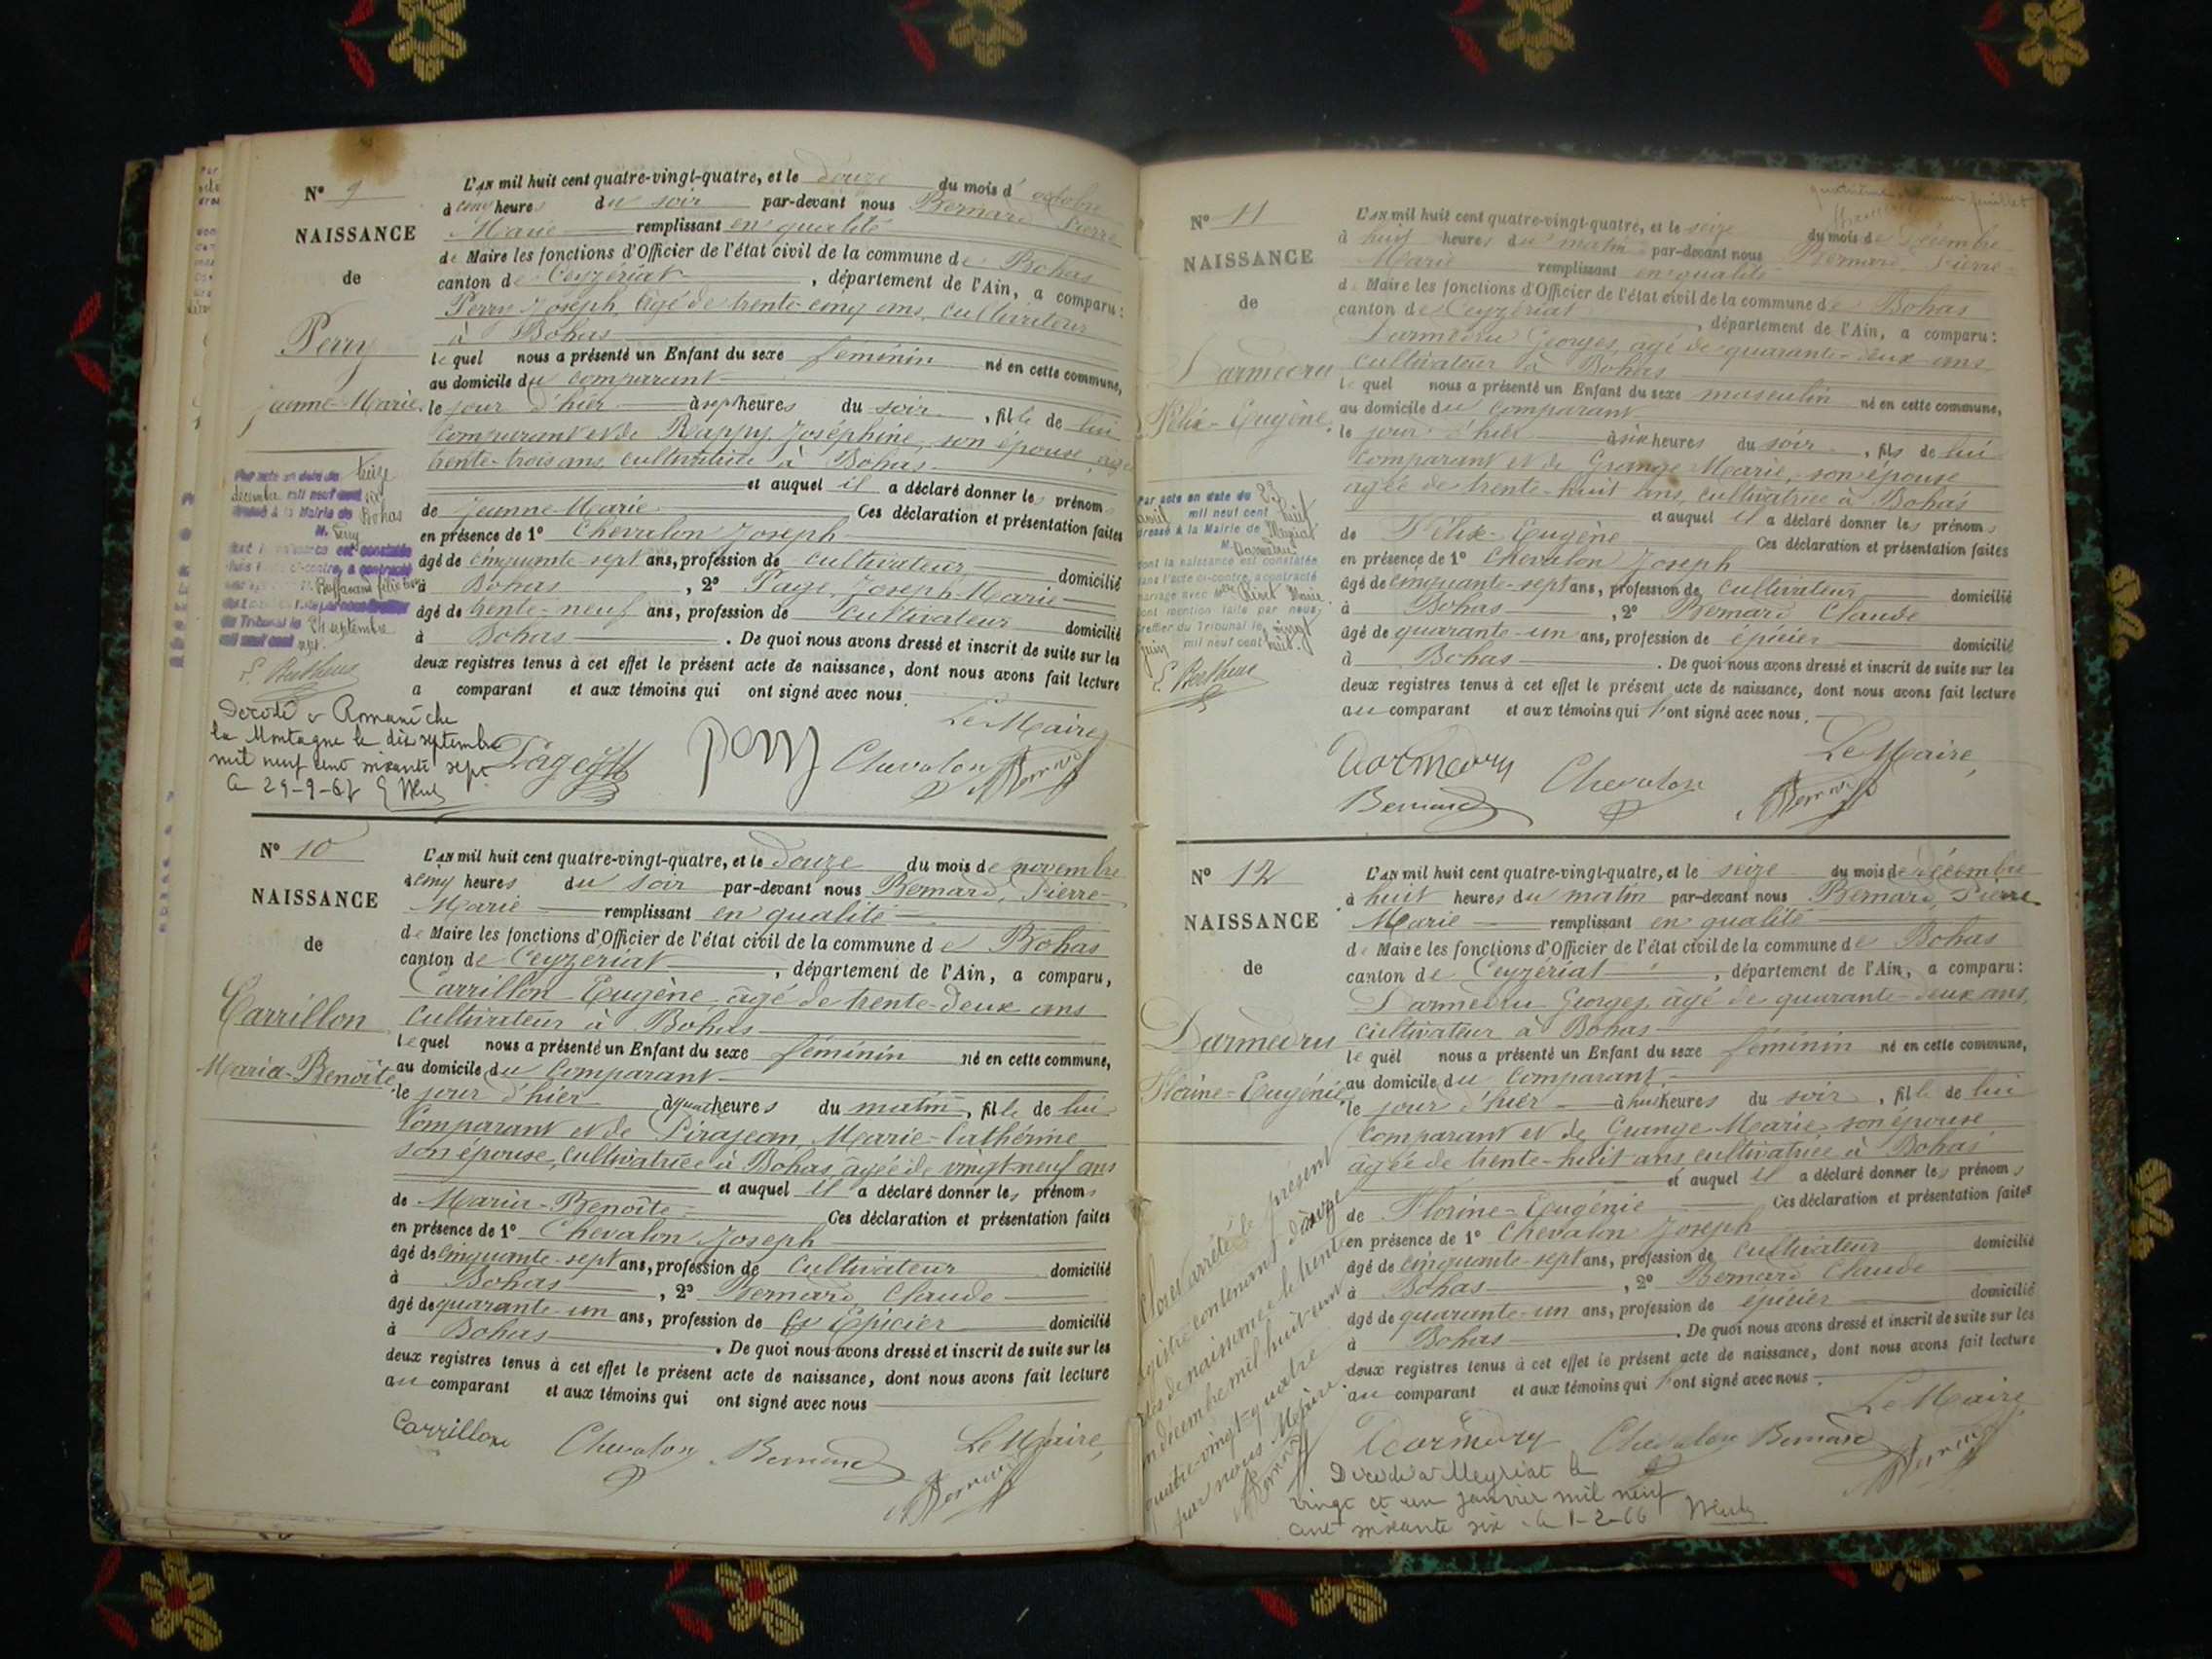 N° 9
NAISSANCE
de
Perry
Jeanne-Marie
L'AN mil huit cent quatre-vingt-quatre, et le douze du mois d'octobre
à cinq heures du soir par-devant nous Bernard Pierre
Marie remplissant en qualité
de Maire les fonctions d'Officier de l'état civil de la commune de Bohas
canton de Ceyzériat, département de l'Ain, a comparu:
Perry Joseph, âgé de trente-cinq ans, cultivateur
à Bohas
lequel nous a présenté un Enfant du sexe féminin né en cette commune,
au domicile du comparant
le jour d'hier à sept heures du soir, fille de lui
comparant et de Rappy Joséphine, son épouse, âgée
trente-trois ans, cultivatrice à Bohas
et auquel il a déclaré donner les prénoms
de Jeanne Marie Ces déclaration et présentation faites
en présence de 1° Chevalon Joseph
âgé de cinquante-sept ans, profession de cultivateur domicilié
à Bohas, 2° Page, Joseph-Marie
âgé de trente-neuf ans, profession de cultivateur domicilié
à Bohas. De quoi nous avons dressé et inscrit de suite sur les
deux registres tenus à cet effet le présent acte de naissance, dont nous avons fait lecture
a comparant et aux témoins qui ont signé avec nous.
Le Maire,
Page Perry Chevalon Bernard
Par acte en date du treize
décembre mil neuf cent six
dressé à la Mairie de Bohas
M. Perry
dont la naissance est constatée
dans l'acte ci-contre, a contracté
du Tribunal le 24 septembre
mil neuf cent sept.
E. Berthene
Décédée à Romanèche
la Montagne le dix septembre
mil neuf cent soixante sept
le 29-9-67
N° 10
NAISSANCE
de
Carrillon
Maria-Benoîte
L'AN mil huit cent quatre-vingt-quatre, et le douze du mois de novembre
à cinq heures du soir par-devant nous Bernard, Pierre-
Marie remplissant en qualité
de Maire les fonctions d'Officier de l'état civil de la commune de Bohas
canton de Ceyzériat, département de l'Ain, a comparu,
Carrillon Eugène, âgé de trente-deux ans
cultivateur à Bohas
lequel nous a présenté un Enfant du sexe féminin né en cette commune,
au domicile du comparant
le jour d'hier à quatre heures du matin, fille de lui
comparant et de Pirajean, Marie-Cathérine
son épouse, cultivatrice à Bohas, âgée de vingt-neuf ans
et auquel il a déclaré donner les prénoms
de Maria-Benoîte Ces déclaration et présentation faites
en présence de 1° Chevalon Joseph
âgé de cinquante-sept ans, profession de cultivateur domicilié
à Bohas, 2° Bernard Claude
âgé de quarante-un ans, profession de Epicier domicilié
à Bohas. De quoi nous avons dressé et inscrit de suite sur les
deux registres tenus à cet effet le présent acte de naissance, dont nous avons fait lecture
au comparant et aux témoins qui ont signé avec nous
Le Maire,
Carrillon Chevalon Bernard Bernard
N° 11
NAISSANCE
de
Darmedru
Félix-Eugène
L'AN mil huit cent quatre-vingt-quatre, et le seize du mois de Décembre
à huit heures du matin par-devant nous Bernard Pierre-
Marie remplissant en qualité
de Maire les fonctions d'Officier de l'état civil de la commune de Bohas
canton de Ceyzériat, département de l'Ain, a comparu:
Darmedru Georges, âgé de quarante-deux ans
cultivateur à Bohas
lequel nous a présenté un Enfant du sexe masculin né en cette commune,
au domicile du comparant
le jour d'hier à six heures du soir, fils de lui
comparant et de Grange Marie, son épouse
âgée de trente-huit ans, cultivatrice à Bohas
et auquel il a déclaré donner les prénoms
de Félix-Eugène Ces déclaration et présentation faites
en présence de 1° Chevalon Joseph
âgé de cinquante-sept ans, profession de cultivateur domicilié
à Bohas, 2° Bernard Claude
âgé de quarante-un ans, profession de épicier domicilié
à Bohas. De quoi nous avons dressé et inscrit de suite sur les
deux registres tenus à cet effet le présent acte de naissance, dont nous avons fait lecture
au comparant et aux témoins qui ont signé avec nous.
Le Maire,
Darmedru Chevalon
Bernard Bernard
Par acte en date du 23
avril mil neuf cent huit
dressé à la Mairie de Meyriat
M. Darmedru
dont la naissance est constatée
dans l'acte ci-contre, a contracté
mariage avec Marie
dont mention faite par nous,
greffier du Tribunal le vingt
juin mil neuf cent huit.
E. Berthene
N° 12
NAISSANCE
de
Darmedru
Florine-Eugénie
L'AN mil huit cent quatre-vingt-quatre, et le seize du mois de décembre
à huit heures du matin par-devant nous Bernard, Pierre
Marie remplissant en qualité
de Maire les fonctions d'Officier de l'état civil de la commune de Bohas
canton de Ceyzériat, département de l'Ain, a comparu:
Darmedru Georges, âgé de quarante-deux ans,
cultivateur à Bohas
lequel nous a présenté un Enfant du sexe féminin né en cette commune,
au domicile du comparant
le jour d'hier à huit heures du soir, fille de lui
comparant et de Grange Marie son épouse
âgée de trente-huit ans cultivatrice à Bohas
et auquel il a déclaré donner les prénoms
de Florine-Eugénie Ces déclaration et présentation faites
en présence de 1° Chevalon Joseph
âgé de cinquante-sept ans, profession de cultivateur domicilié
à Bohas, 2° Bernard Claude
âgé de quarante-un ans, profession de épicier domicilié
à Bohas. De quoi nous avons dressé et inscrit de suite sur les
deux registres tenus à cet effet le présent acte de naissance, dont nous avons fait lecture
au comparant et aux témoins qui ont signé avec nous.
Le Maire,
Darmedru Chevalon Bernard Bernard
Décédée à Meyriat le
vingt et un janvier mil neuf
cent soixante six. le 1-2-66
Clos et arrêté le présent
registre contenant douze
actes de naissance le trente
un décembre mil huit cent
quatre-vingt-quatre
par nous Maire
Bernard